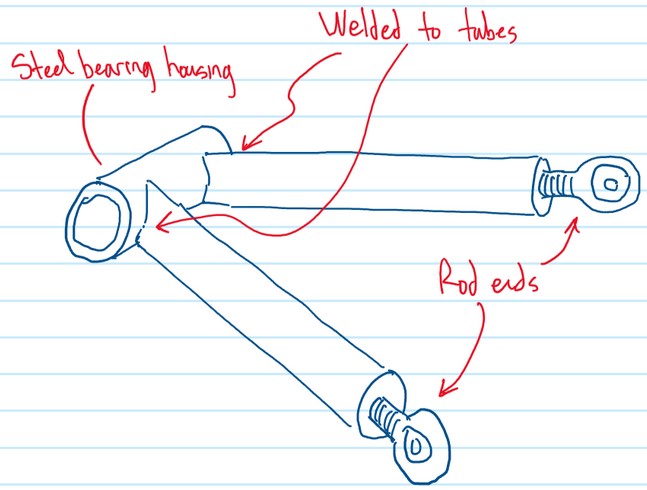 Welded to tubes
Steel bearing housing
Rod ends